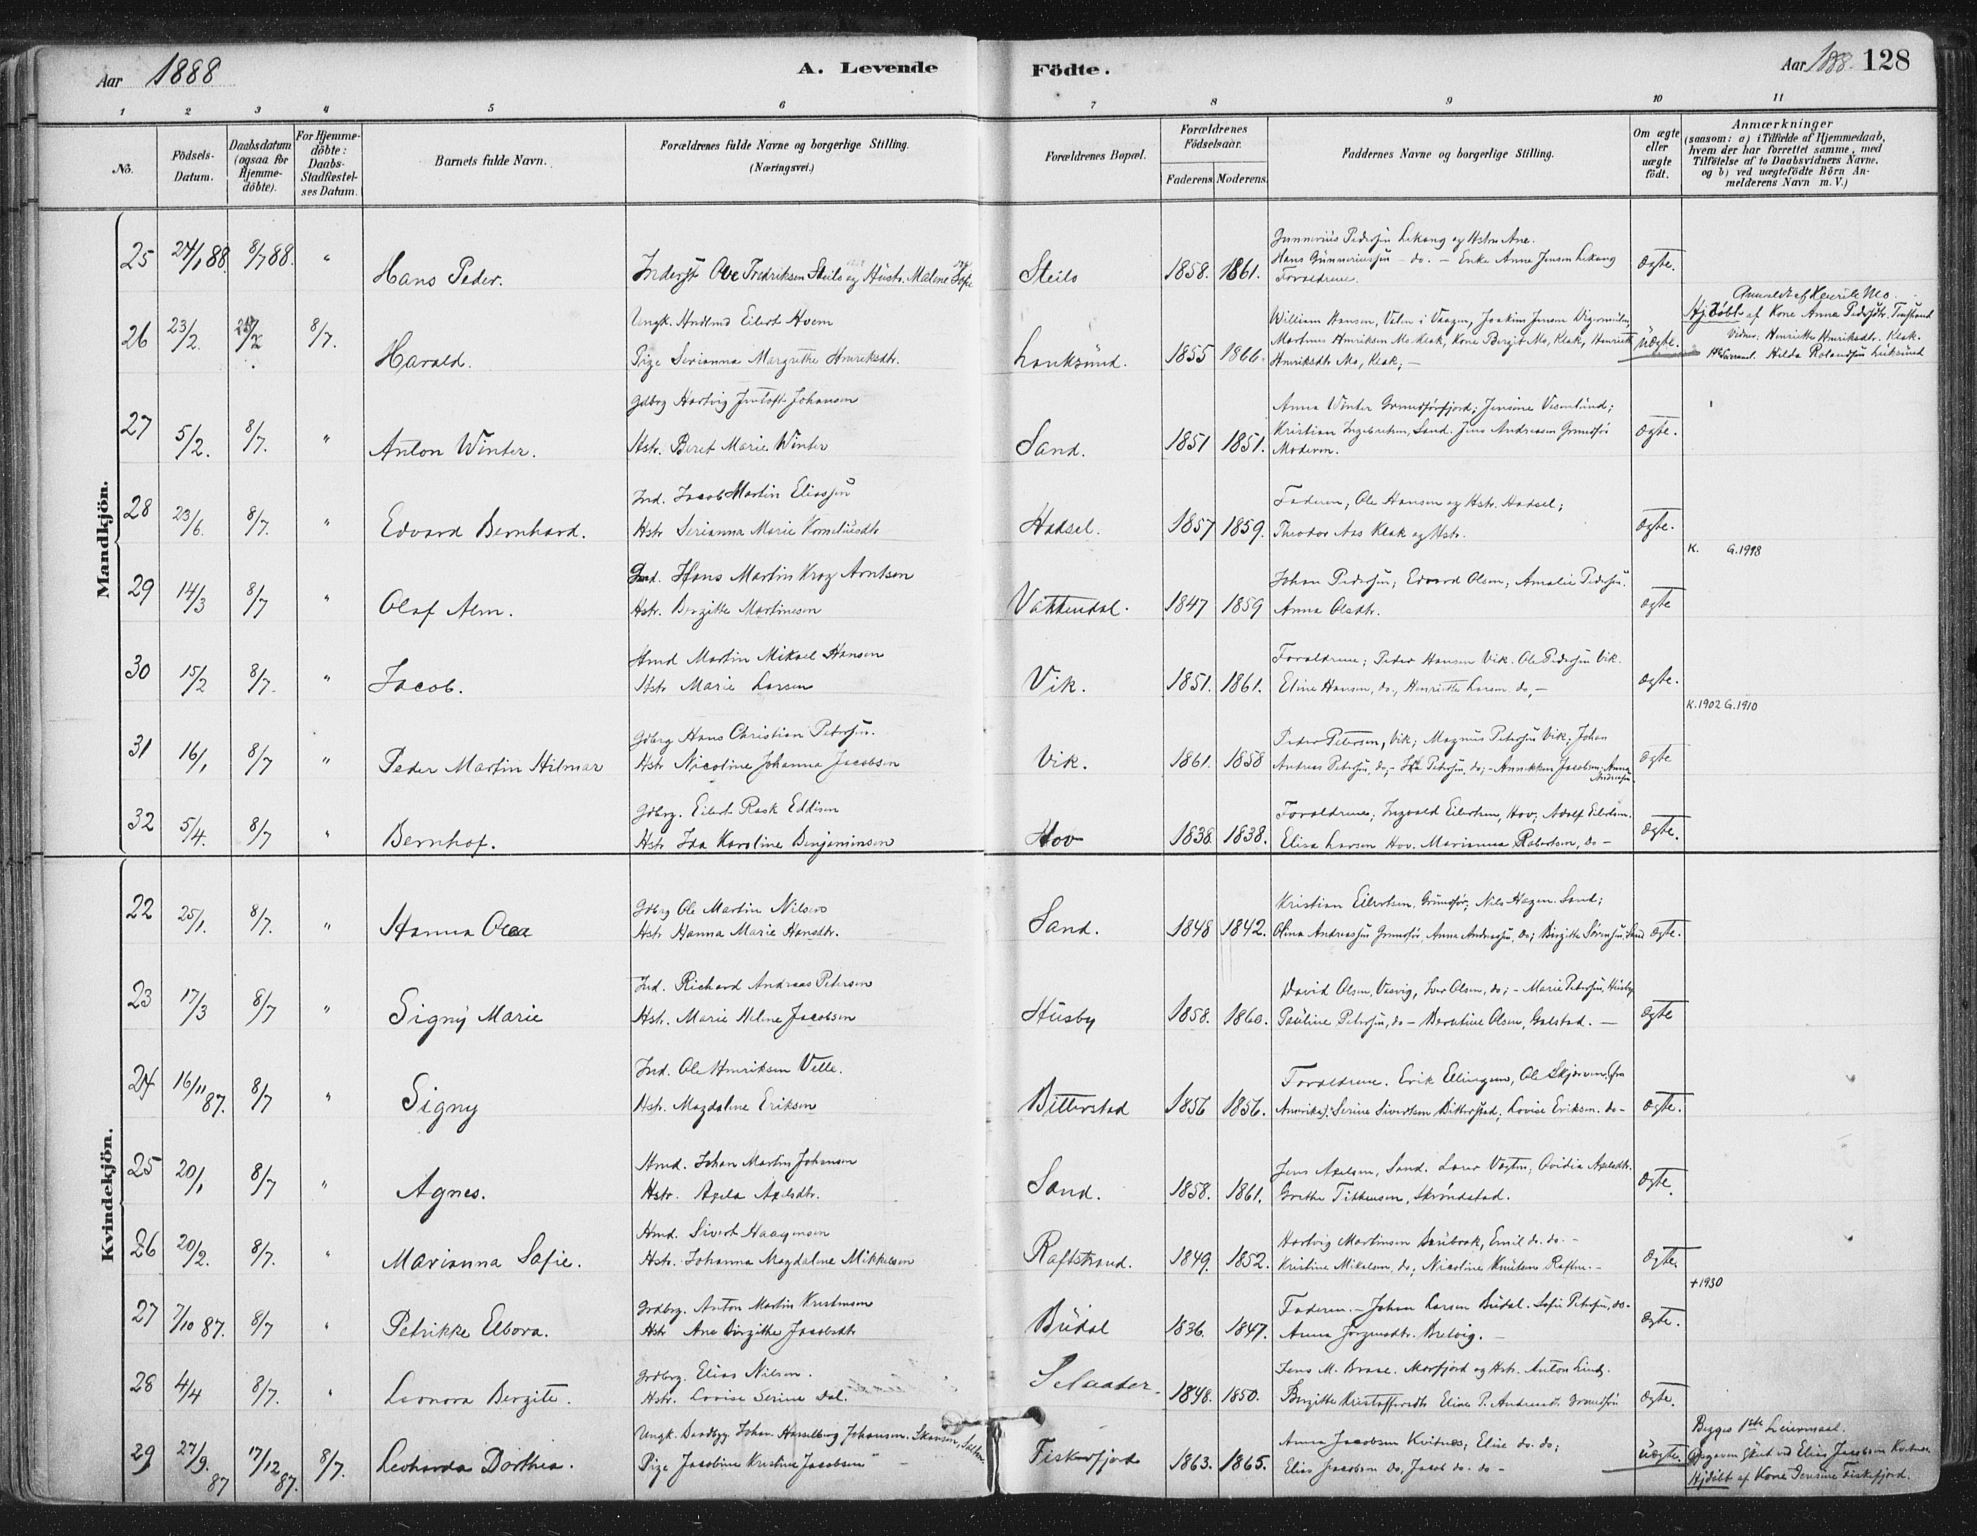 Aar 1888
A. Levende
Födte.
Aar 1888. 128
1 2 3 4 5 6 7 8 9 10 11
No.
Födsels-Datum.
Daabsdatum (ogsaa for Hjemme-döbte).
For Hjemme-döbte: Daabs-Stadfæstel-ses Datum.
Barnets fulde Navn.
Forældrenes fulde Navne og borgerlige Stilling. (Næringsvei.)
Forældrenes Bopæl.
Forældrenes Födselsaar.
Faderens. Moderens.
Faddernes Navne og borgerlige Stilling.
Om ægte eller uægte födt.
Anmærkninger
(saasom: a) i Tilfælde af Hjemmedaab,
hvem der har forrettet samme, med
Tilföielse af to Daabsvidners Navne.
og b) ved uægtefödte Börn An-
melderens Navn m. V.)
Mandkjön.
25 24/1 88. 8/7 88. " Hans Peder. Inderst Ove Fredriksen Steilo og Hustr. Malene Steilo 1858. 1861. Gunnerius Pedersen Lekang og Hstr. Ane.
Hans Gunneriussen do. – Enke Anne Jensen Lekang
Forældrene. ægte.
26 23/2 8/7. Harald. Ungk. Eilert Hveem
Pige Serianna Margrethe Henriksdtr. 1855 1866. William Hansen,
Martines Henriksen Mo Kleak, Kone Mo, Kleak, Henriette
Henriksdtr Mo, Kleak, – uægte. Anmeldt af Henrik Mo.
Hjdöbt af Kone Anna Pedersdtr.
Vidner: Henriette Henriksdtr. Kleak.
27 5/2. 8/7. " Anton Winter. Gdbrg Hartvig Johansen
Hstr. Beret Marie Winter Sand. 1851 1851. Anna Winter
Kristian Ingebretsen, Sand. Jens Andreasen
Moderen. ægte.
28 23/6. 8/7. " Edvard Bernhard. Ind. Jacob Martin Eliassen
Hstr Serianna Marie Korneliusdtr Hadsel. 1857 1859. Faderen; Ole Hansen og Hstr. Hadsel;
Theodor Aas Kleak og Hstr. ægte.
K. G.1918
29 14/3 8/7 " Olaf Alm. Ind. Hans Martin Krog Arntsen
Hstr. Bergitte Martinesen Vattendal. 1847 1859 Johan Pedersen; Edvard Olsen; Amalie Pedersen.
Anna Olsdtr. ægte
30 15/2 8/7. " Jacob. Martin Mikael Hansen
Hstr Marie Larsen Vik. 1851. 1861. Forældrene; Peder Hansen Vik. Ole Pedersen Vik.
Eline Hansen, do., Henriette Larsen do, – ægte.
K.1902 G.1910
31 16/1 8/7 " Peder Martin Hilmar Gdbrg Hans Christian Petersen.
Hstr Nicoline Johanna Jacobsen Vik. 1861. 1858 Peder Petersen, Vik; Magnus Petersen Vik; Johan
Andreas Petersen, do, – Ida Petersen, do, – Annikken Jacobsen, Anna ægte
32 5/4. 8/7 " Bernhof. Gdbrg. Eilert Rask Eddisen
Hstr Ida Karoline Benjaminsen Hov 1838. 1838. Forældrene; Ingvald Eilertsen, Hov, Adolf Eilertsen.
Elisa Larsen Hov. Marianna Robertsen, do – ægte.
Kvindekjön.
22 25/1. 8/7. " Hanna Olea Gdbrg Ole Martin Nilsen
Hstr Hanna Marie Hansdtr. Sand. 1848 1842. Kristian Eilertsen, Grundfør; Nils Hagen Sand;
Olina Andreassen Grundfør, Anna Andreassen, do; Birgitte Sørensen, Sand ægte.
23 17/3 8/7 " Signy Marie Ind. Richard Andreas Petersen
Hstr. Marie Helene Jacobsen Husby 1858. 1860. David Olsen, Vasvig, Iver Olsen, do; – Marie Petersen, Husby
Pauline Petersen, do – Berntine Olsen, Galstad. – ægte
24 16/11 87. 8/7 " Signy Ind. Ole Henriksen Velle.
Hstr. Magdalene Eriksen Bitterstad 1856 1856. Forældrene. Erik Ellingsen, Ole Skjørven (fra
Amerika); Serine Sivertsen Bitterstad, Lovise Eriksen. do – ægte.
25 20/1 8/7 " Agnes. Hmd. Johan Martin Johansen
Hstr. Axela Axelsdtr. Sand. 1858. 1861. Jens Axelsen, Sand. Ovidia Axelsdtr.
Grethe Tidemsen, Skrøndstad. ægte.
26 20/2. 8/7. " Marianna Sofie. Hmd. Sivert Haagensen
Hstr. Johanna Magdalena Mikkelsen Raftstrand. 1849. 1852. Hartvig Martinsen, Emil do. do. –
Kristine Mikalsen, do; Nicoline Knutsen Raften. – ægte.
+1930
27 7/10 87. 8/7 " Petrikke Elbora. Grdbrg. Anton Martin Kristensen
Hstr Ane Birgitte Jacobsdtr Budal 1836. 1847. Faderen. – Johan Larsen Budal. Sofie Petersen, do –
Anna Jörgensdtr. Bretvig. – ægte.
28 4/4 8/7. " Leonora Bergite. Grdbrg. Elias Nilsen.
Hstr. Lovise Serine Dal. 1848. 1850. Jens M. Morfjord og Hstr. Anton Lind;
Birgitte Kristoffersdtr Eline P. Andreasd. Grundfør ægte.
29 27/9. 87 17/12 87. 8/7. Leonarda Dorthea. Ungk. Johan Hasselberg Johansen. Skansen,
Pige Jacobine Kristine Jacobsen – Fiskerfjord 1863. 1865. Anna Jacobsen Kvitnes; Elise do. do;
Elias Jacobsen do. Jacob do. do – uægte. Begges 1ste Leiermaal.
Opgaven Elias Jacobsen Kvitnes.
Hjdöbt af Kone Jensine Fiskefjord.